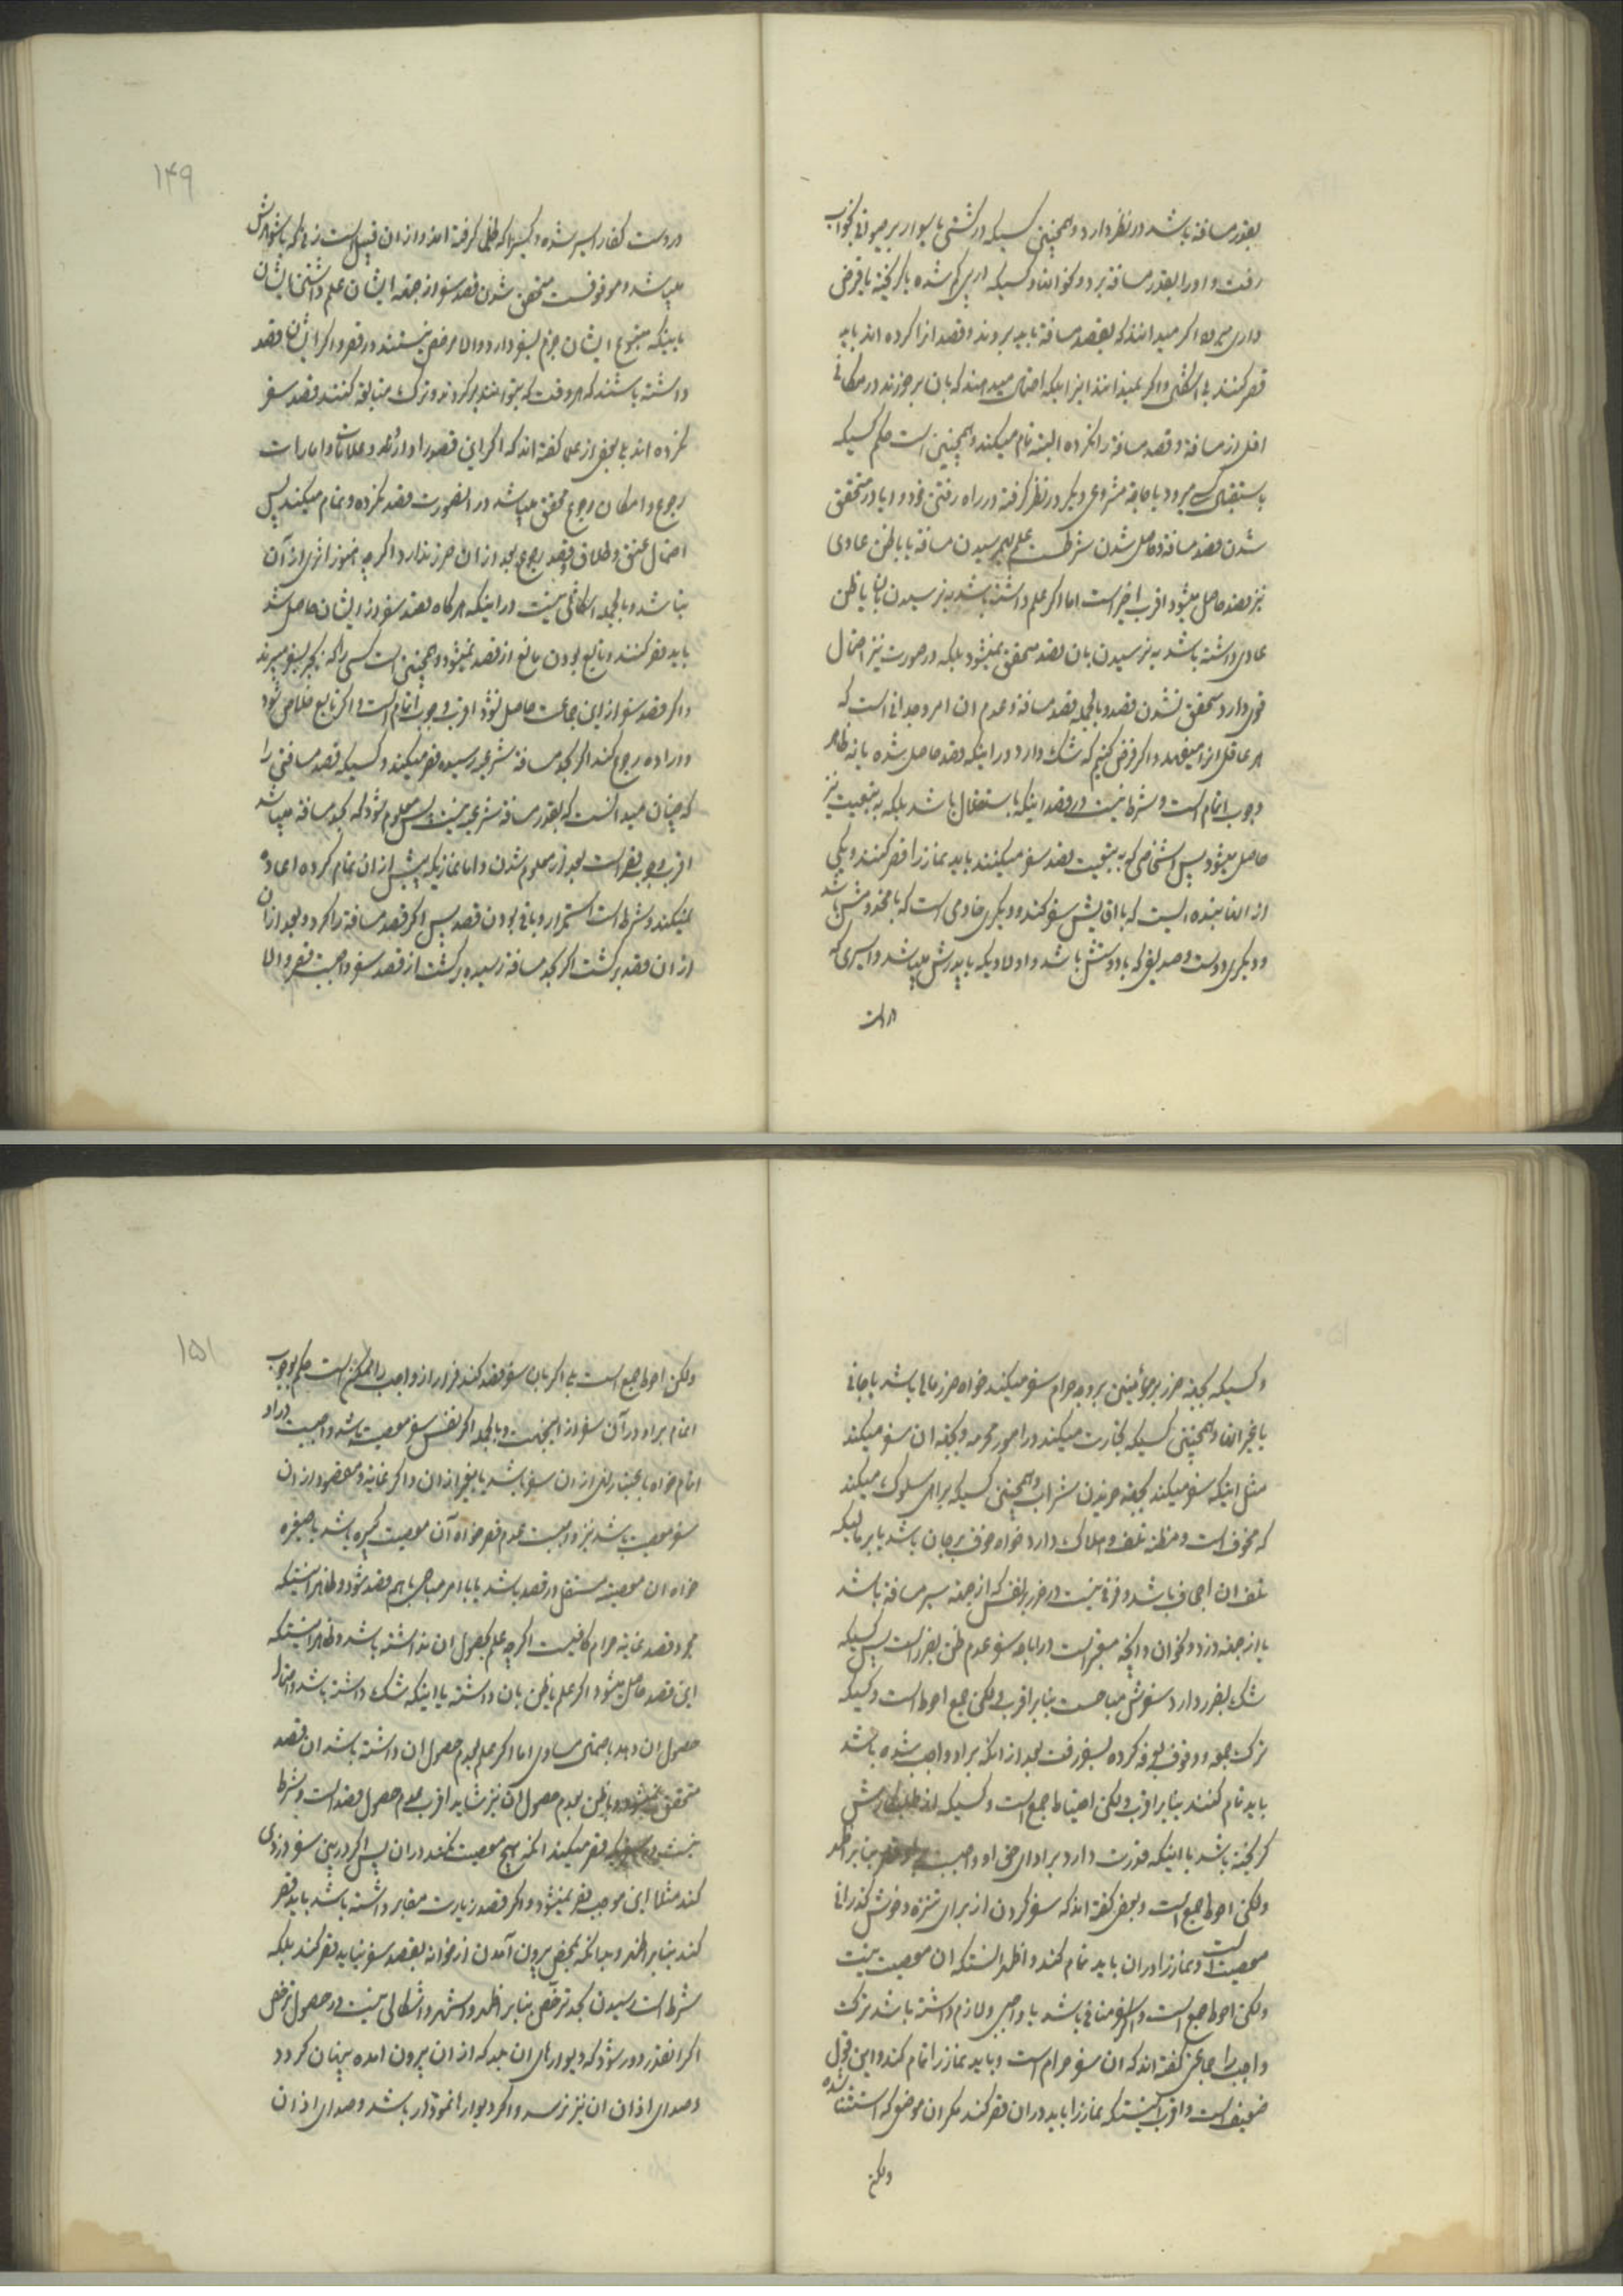 بقدر مسافة باشد در نظر دارد و همچنین کسیکه در کشتی یا سوار بر حیوانی بخواب
رفت و او را بقدر مسافة برد و کسیکه
داری میرود اگر میدانند که بقصد مسافة باید بروند و قصد آنرا کرده اند باید
قصر کنند بی اشکال و اگر نمیدانند اینرا بلکه احتمال میدهند که بآن برخورند در مکانی
اقل از مسافة و قصد مسافة را نکرده البته تمام میکند و همچنین است حکم کسیکه
باستقبال کسی میرود یا حاجة مشروعی دیگر در نظر گرفته در راه رفتن خود و آیا در متحقق
شدن قصد مسافة و حاصل شدن شرطست علم بهم رسیدن مسافة یا با ظن عادی
نیز قصد حاصل میشود اقرب اخیر است اما اگر علم داشته باشد به نرسیدن بآن یا ظن
عادی داشته باشد به نرسیدن بآن قصد متحقق نمیشود بلکه در صورت نیز احتمال
قوی دارد متحقق نشدن قصد و بالجمله قصد مسافة و عدم آن امر وجدانی است که
هر عاقل آنرا میفهمد و اگر فرض کنیم که شک دارد در اینکه قصد حاصل شده یا نه ظاهر
وجوب اتمام است و شرط نیست در قصد اینکه باستقلال باشد بلکه به تبعیت نیز
حاصل میشود پس اشخاصی که به تبعیت قصد سفر میکنند باید نماز را قصر کنند و یکی
از آنها بنده ایست که با آقایش سفر کند و دیگری خادمی است که با مخدومش باشد
و دیگری دوست و صدیقی که با دوستش باشد و اولادیکه با پدرش میباشد و اسیری که
در دست
۱۴۹
در دست کفار اسیر شده و کسیرا که ظلمی گرفته اند و از آن قبیل است زنی که با شوهرش
میباشد و موقوفست متحقق شدن قصد سفر از جهة ایشان علم داشتن ایشان
باینکه متبوع ایشان جزم بسفر دارد والا مرخص نیستند در قصر و اگر ایشان قصد
داشته باشند که هر وقت که بتوانند برگردند و ترک متابعة کنند قصد سفر
نکرده اند بلی بعض از علما گفته اند که اگر این قصور را دارند و علامات و امارات
رجوع و امکان رجوع محقق میباشد در آنصورت قصد نکرده و تمام میکند پس
احتمال عتق و طلاق و قصد رجوع بعد از آن ضرر ندارد اگر چه هنوز اثری از آن
نباشد و بالجمله اشکالی نیست در اینکه هرگاه قصد سفر از ایشان حاصل شد
باید قصر کنند و تابع بودن مانع از قصد نمیشود و همچنین است کسی را که بجبر بسفر میبرند
و اگر قصد سفر از این جماعت حاصل نشود اقرب وجوب اتمام است و اگر تابع خلاص شود
و اراده رجوع کند اگر بحد مسافة شرعیه رسیده قصر میکند و کسیکه قصد مسافتی را
که چنان میدانست که بقدر مسافة شرعیه نیست پس معلوم شود که بحد مسافة میباشد
اقرب وجوب قصر است بعد از معلوم شدن و اما نمازیکه پیش از آن تمام کرده اعاده
نمیکند و شرط است استمرار و باقی بودن قصد پس اگر قصد مسافة را کرد و بعد از آن
از آن قصد برگشت اگر بحد مسافة نرسیده برگشت از قصد سفر واجبست قصر والا
و کسیکه بجهة ضرر بر مؤمنین برود حرام سفر میکند خواه ضرر مالی باشد یا جانی
یا غیر آنها و همچنین کسیکه تجارت میکند در امور محرمه و بجهة آن سفر میکند
مثل اینکه سفر میکند بجهة خریدن شراب و همچنین کسیکه برای سلوک میکند
که مخوف است و مظنه تلف و هلاک دارد خواه خوف بر جان باشد یا بر مالیکه
تلف آن اجحاف باشد و فرقی نیست در ضرر بر نفس که از جهة سیر مسافة باشد
یا از جهة دزد و نحو آن و آنچه معتبر است در اباحه سفر عدم ظن بضرر است پس کسیکه
شک بضرر دارد سفرش مباحست بنابر اقرب ولکن جمع احوط است و کسیکه
ترک جمعه و وقوف بعرفه کرده بسفر رفت بعد از آنکه بر او واجب شده باشد
باید تمام کند بنابر اقرب ولکن احتیاط جمع است و کسیکه از طلبکارش
گریخته باشد با اینکه قدرت دارد بر ادای حق او واجبست بر او بنابر اظهر
ولکن احوط جمع است و بعض گفته اند که سفر کردن از برای تنزه و خوش گذرانی
معصیت است و نماز را در آن باید تمام کند و اظهر آنستکه آن معصیت نیست
ولکن احوط جمع است و اگر سفر منافی باشد با واجبی و لازم داشته باشد ترک
واجب را جماعتی گفته اند که آن سفر حرام است و باید نماز را تمام کند و این قول
ضعیف است و اقرب آنستکه نماز را باید در آن قصر کند مگر آن موضع که استثنا شده
ولکن
۱۵۱
ولکن احوط جمع است بلی اگر بآن سفر قصد کند فرار از واجب را ممکن است حکم بوجوب
اتمام بر او در آن سفر از اینجهت و بالجمله اگر نفس سفر معصیت باشد واجبست بر او
اتمام خواه باعتبار نهی از آن سفر باشد یا بغیر از آن و اگر غایة و مقصود از آن
سفر معصیت باشد نیز واجبست عدم قصر خواه آن معصیت کبیره باشد یا صغیره
خواه آن معصیة مستقل در قصد باشد یا با امر مباحی باهم قصد شود و ظاهر اینستکه
مجرد قصد غایة حرام کافیست اگر چه علم بحصول آن نداشته باشد و ظاهر اینستکه
این قصد حاصل میشود اگر علم یا ظن بآن داشته یا اینکه شک داشته باشد و احتمال
حصول آن دهد باحتمال مساوی اما اگر علم بعدم حصول آن داشته باشد آن قصد
متحقق نمیشود و با ظن بعدم حصول آن نیز شاید اقرب عدم حصول قصد است و شرط
نیست در سفریکه قصر میکند آنکه هیچ معصیت نکند در آن پس اگر در بین سفر دزدی
کند مثلا این موجب قصر نمیشود و اگر قصد زیارت مقابر داشته باشد باید قصر
کند بنابر اظهر و چنانکه بمحض بیرون آمدن از خانه بقصد سفر نباید قصر کند بلکه
شرط است رسیدن بحد ترخص بنابر اظهر و اشهر و اشکالی نیست در حصول ترخص
اگر آنقدر دور شود که دیوارهای آن بلد که از آن بیرون آمده پنهان گردد
و صدای اذان آن نیز نرسد و اگر دیوارها نمودار باشد و صدای اذان